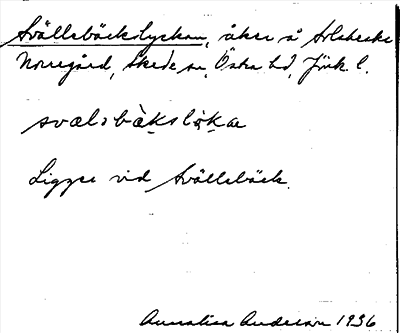 Svällsbäckslyckan, åker å Holsbecke
Norregård, Skede sn, Östra hd, Jönk. l.
svælsbàkslo̤kæ
Ligger vid Svällsbäck.
Annalisa Anderson 1936